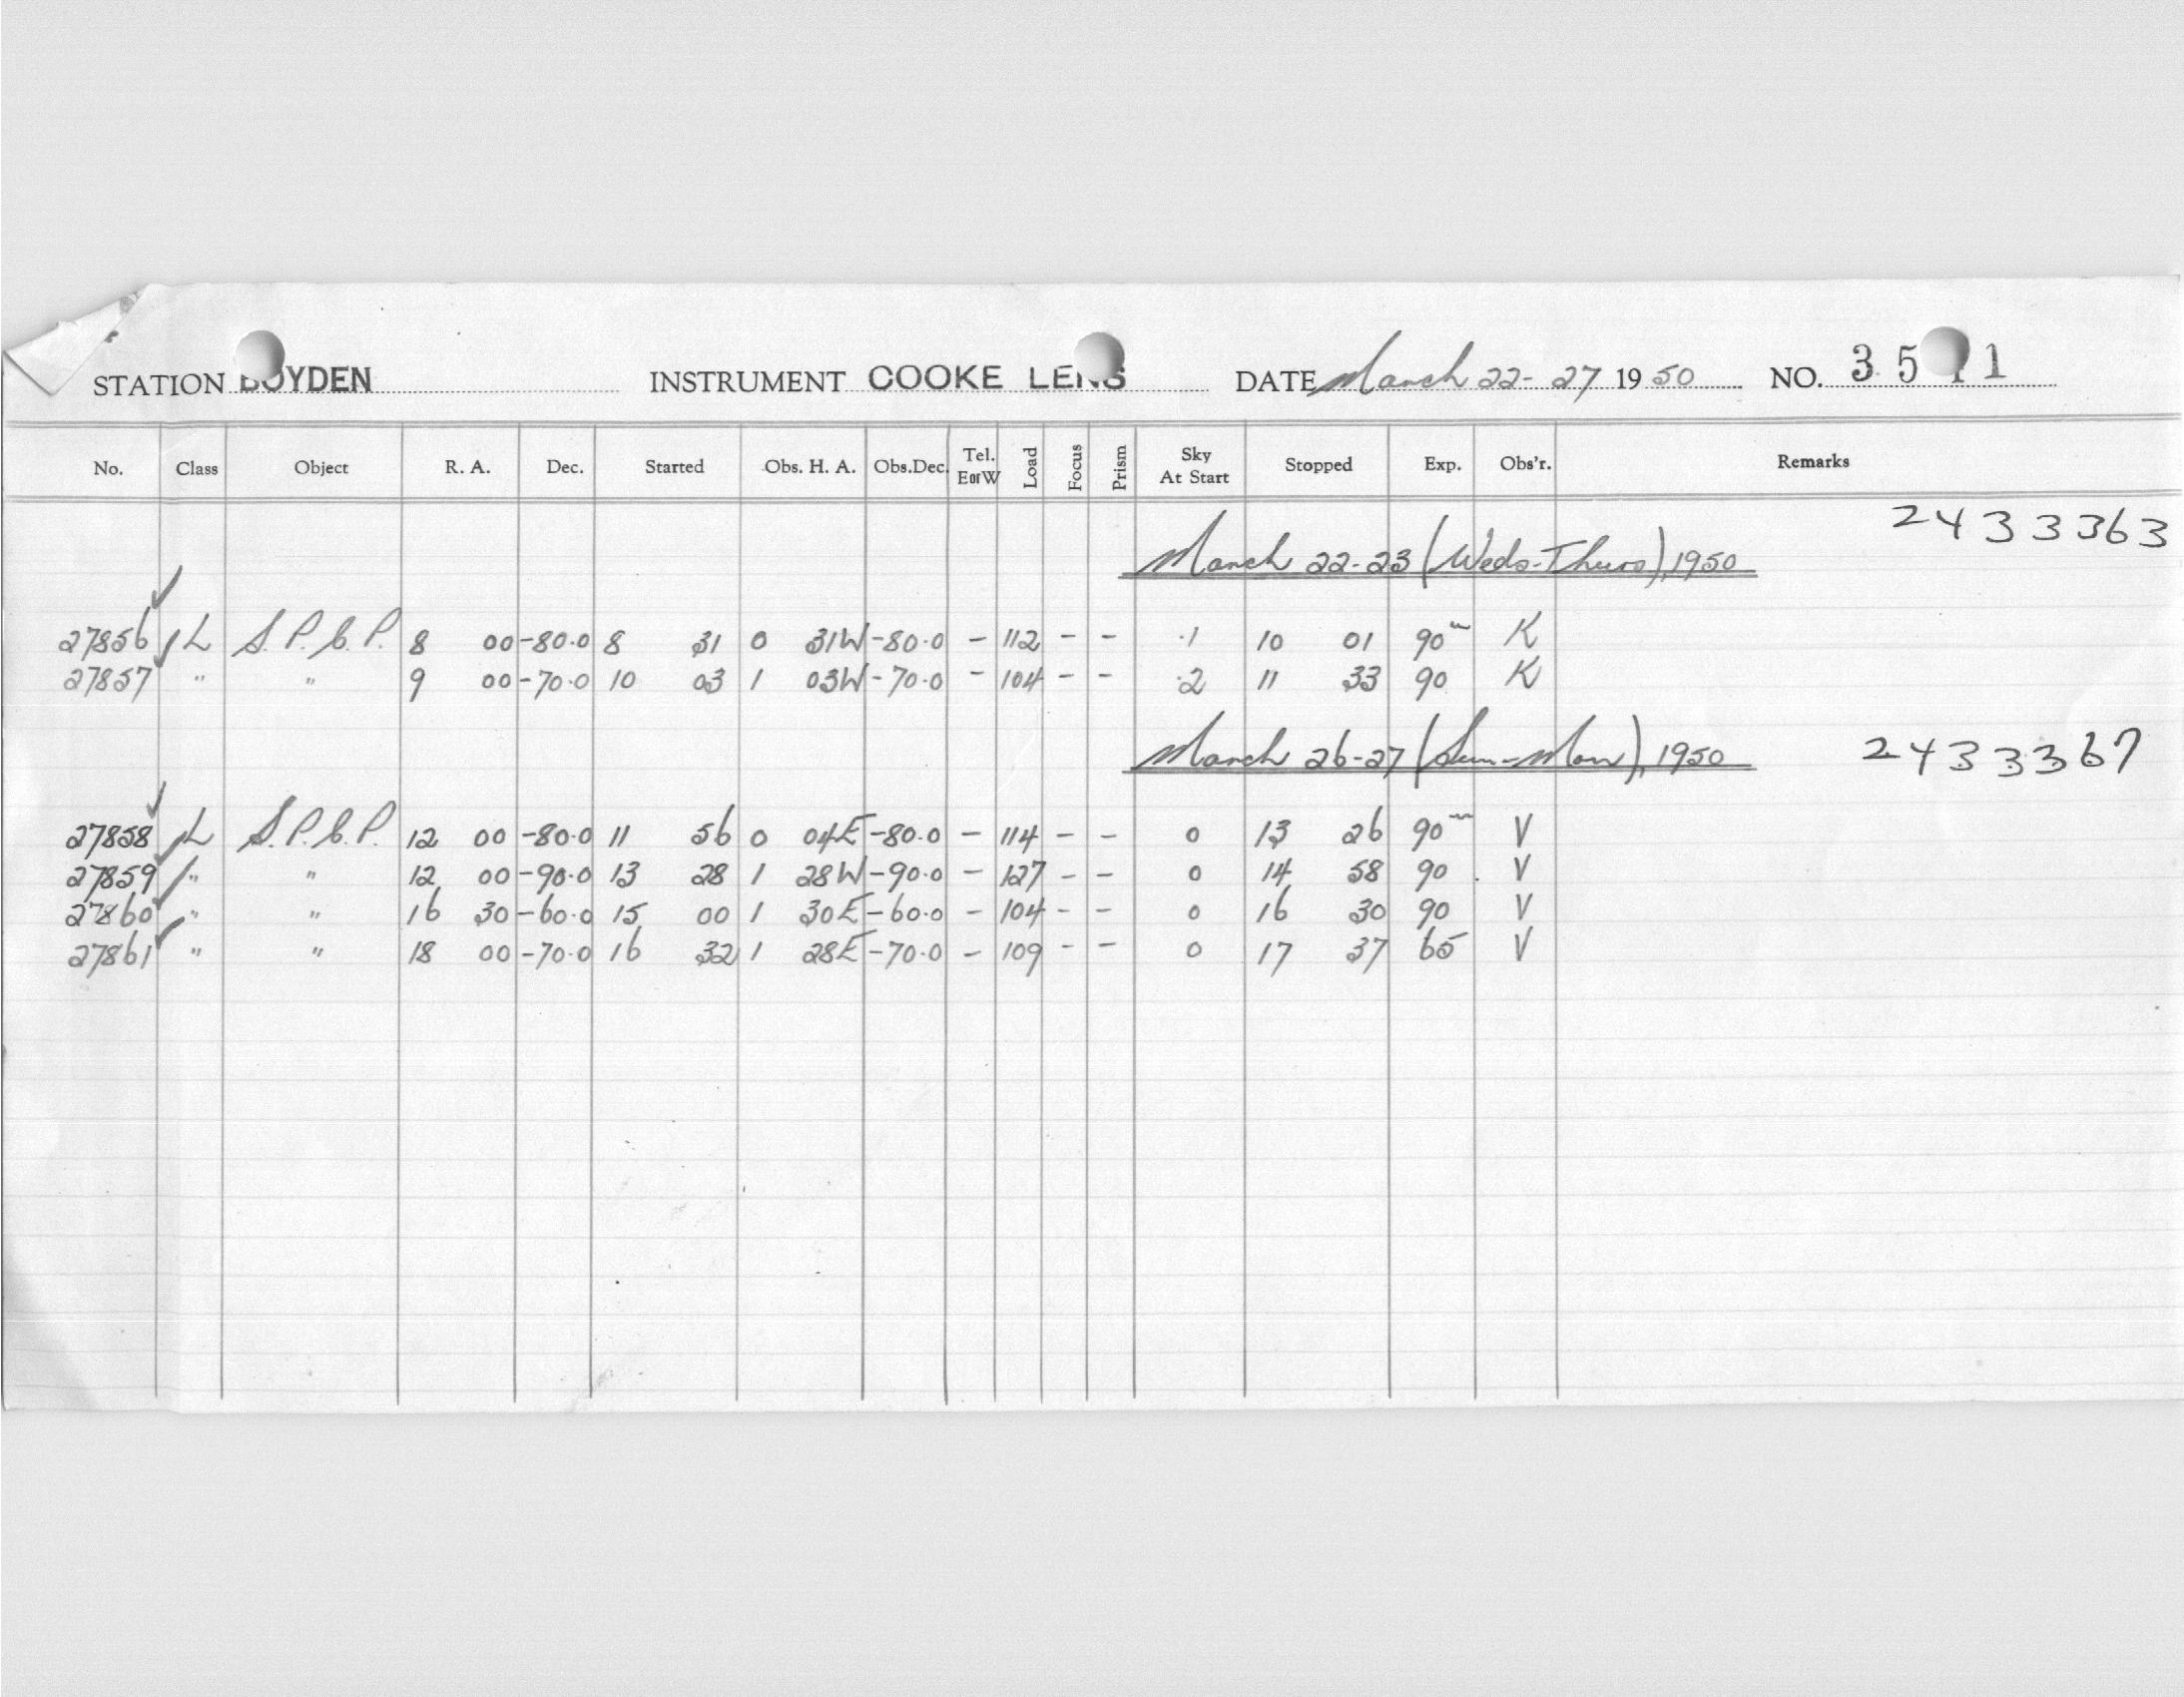 STATION BOYDEN INSTRUMENT COOKE LENS DATE March 22-27 1950 NO. 35 1
No. Class Object R. A. Dec. Started Obs. H. A. Obs.Dec. Tel. E or W Load Focus Prism Sky At Start Stopped Exp. Obs'r. Remarks
2433363
March 22-23 (Weds-Thurs), 1950
27856 L S.P.C.P. 8 00 -80.0 8 31 0 31W -80.0 - 112 - - .1 10 01 90m K
27857 " " 9 00 -70.0 10 03 1 03W -70.0 - 104 - - .2 11 33 90 K
March 26-27 (Sun-Mon), 1950 2433367
27858 L S.P.C.P. 12 00 -80.0 11 56 0 04E -80.0 - 114 - - 0 13 26 90m V
27859 " " 12 00 -90.0 13 28 1 28W -90.0 - 127 - - 0 14 58 90 V
27860 " " 16 30 -60.0 15 00 1 30E -60.0 - 104 - - 0 16 30 90 V
27861 " " 18 00 -70.0 16 32 1 28E -70.0 - 109 - - 0 17 37 65 V